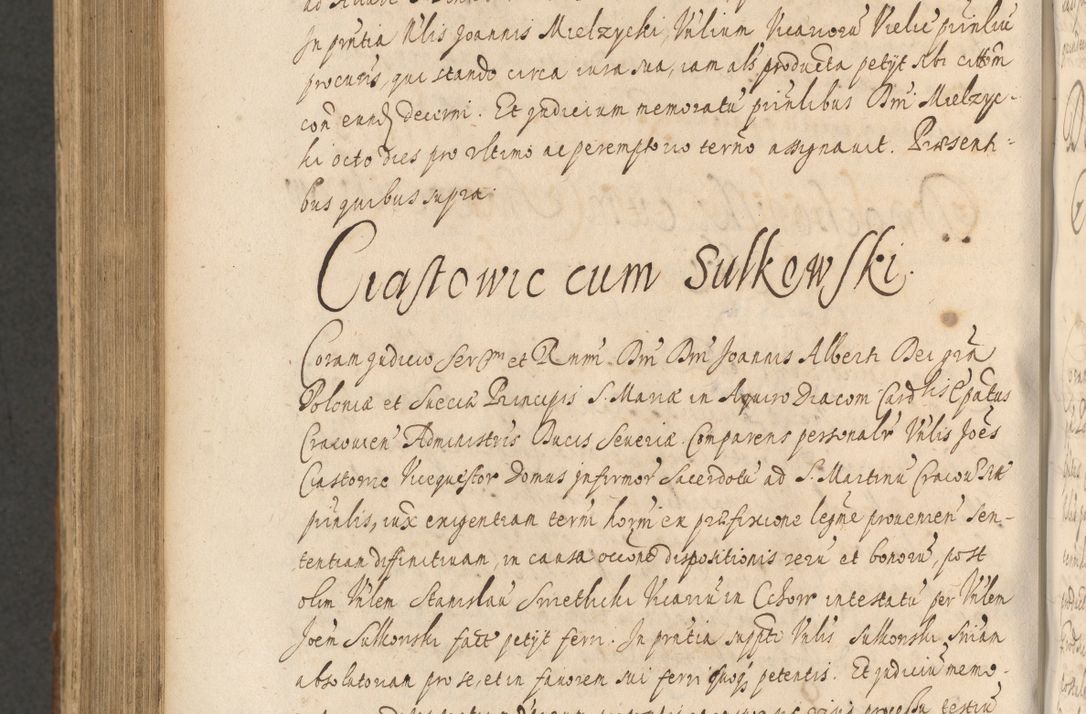 In pñtia Vlis Joannis Mielzycki, Vnlium Vicarioru Vielic prinliu
procuris, qui stando circa iura sua, iam als producta petijt sibi cittom
con eund decerni. Et judicium memoratu prinlibus Dni Mielzyc-
ki octo dies pro vltimo ac peremptorio terno assignauit. Præsenti-
bus quibus supra.
Ciastowic cum Sulkowski.
Coram judicio Serssmi et Rnmi Dni Dni Joannis Alberti Dei gra
Poloniæ et Sueciæ Principis S. Mariæ in Aquiro Diaconi Cardlis Epatus
Cracouien Administris Ducis Seueriæ. Comparens personalr Vnlis Joēs
Ciastowic Vicequestor Domus infirmor Sacerdotu ad S. Martinu Cracou
prinlis, iux exigentiam termi horni ex præfixione legme prouenien sen-
tentiam diffinitiuam, in causa occone dispositionis reru et bonoru, post
olim Vnlem Stanislau Smetlicki Vicariu in intestatu per Vnlem
Joem Sulkowski fact petijt ferri. In pñtia suppti Vnlis Sulkowski sniam
absolutoriam pro se, et in fauorem sui ferri quoq petentis. Et judiciu memo-
processu testiu